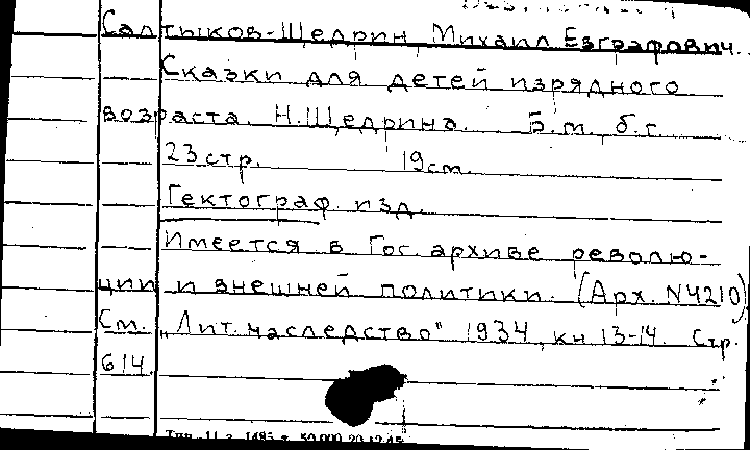 Салтыков-Щедрин, Михаил Евграфович.
Сказки для детей изрядного
возраста. Н. Щедрина. Б. м., б. г.
23 стр. 19 см.
Гектограф. изд.
Имеется в Гос. архиве револю-
ции и внешней политики. (Арх. N4210)
См. „Лит. наследство" 1934, кн. 13-14. Стр.
614.